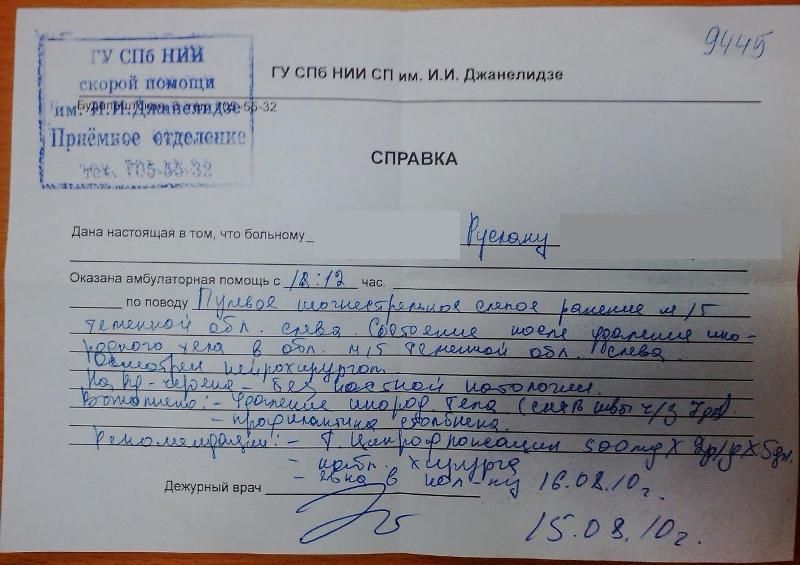 9445
ГУ СПб НИИ
скорой помощи
им. И.И.Джанелидзе
Приёмное отделение
тел. 705-55-32
ГУ СПб НИИ СП им. И.И. Джанелидзе
СПРАВКА
Дана настоящая в том, что больному Руслану
Оказана амбулаторная помощь с 18:12 час.
по поводу Пулевое огнестрельное слепое ранение м/т
теменной обл. слева. Состояние после удаления ино-
родного тела в обл. м/т теменной обл. слева.
Осмотрен нейрохирургом.
На кр-черепа - без костной патологии.
Выполнено: - Удаление инород. тела (снять швы ч/з 7дн).
- профилактика столбняка.
Рекомендации: - Т. Ципрофлоксацин 500mg X 2р/д X 5дн.
- набл. хирурга
- явка в пол-ку 16.08.10г.
Дежурный врач
15.08.10г.